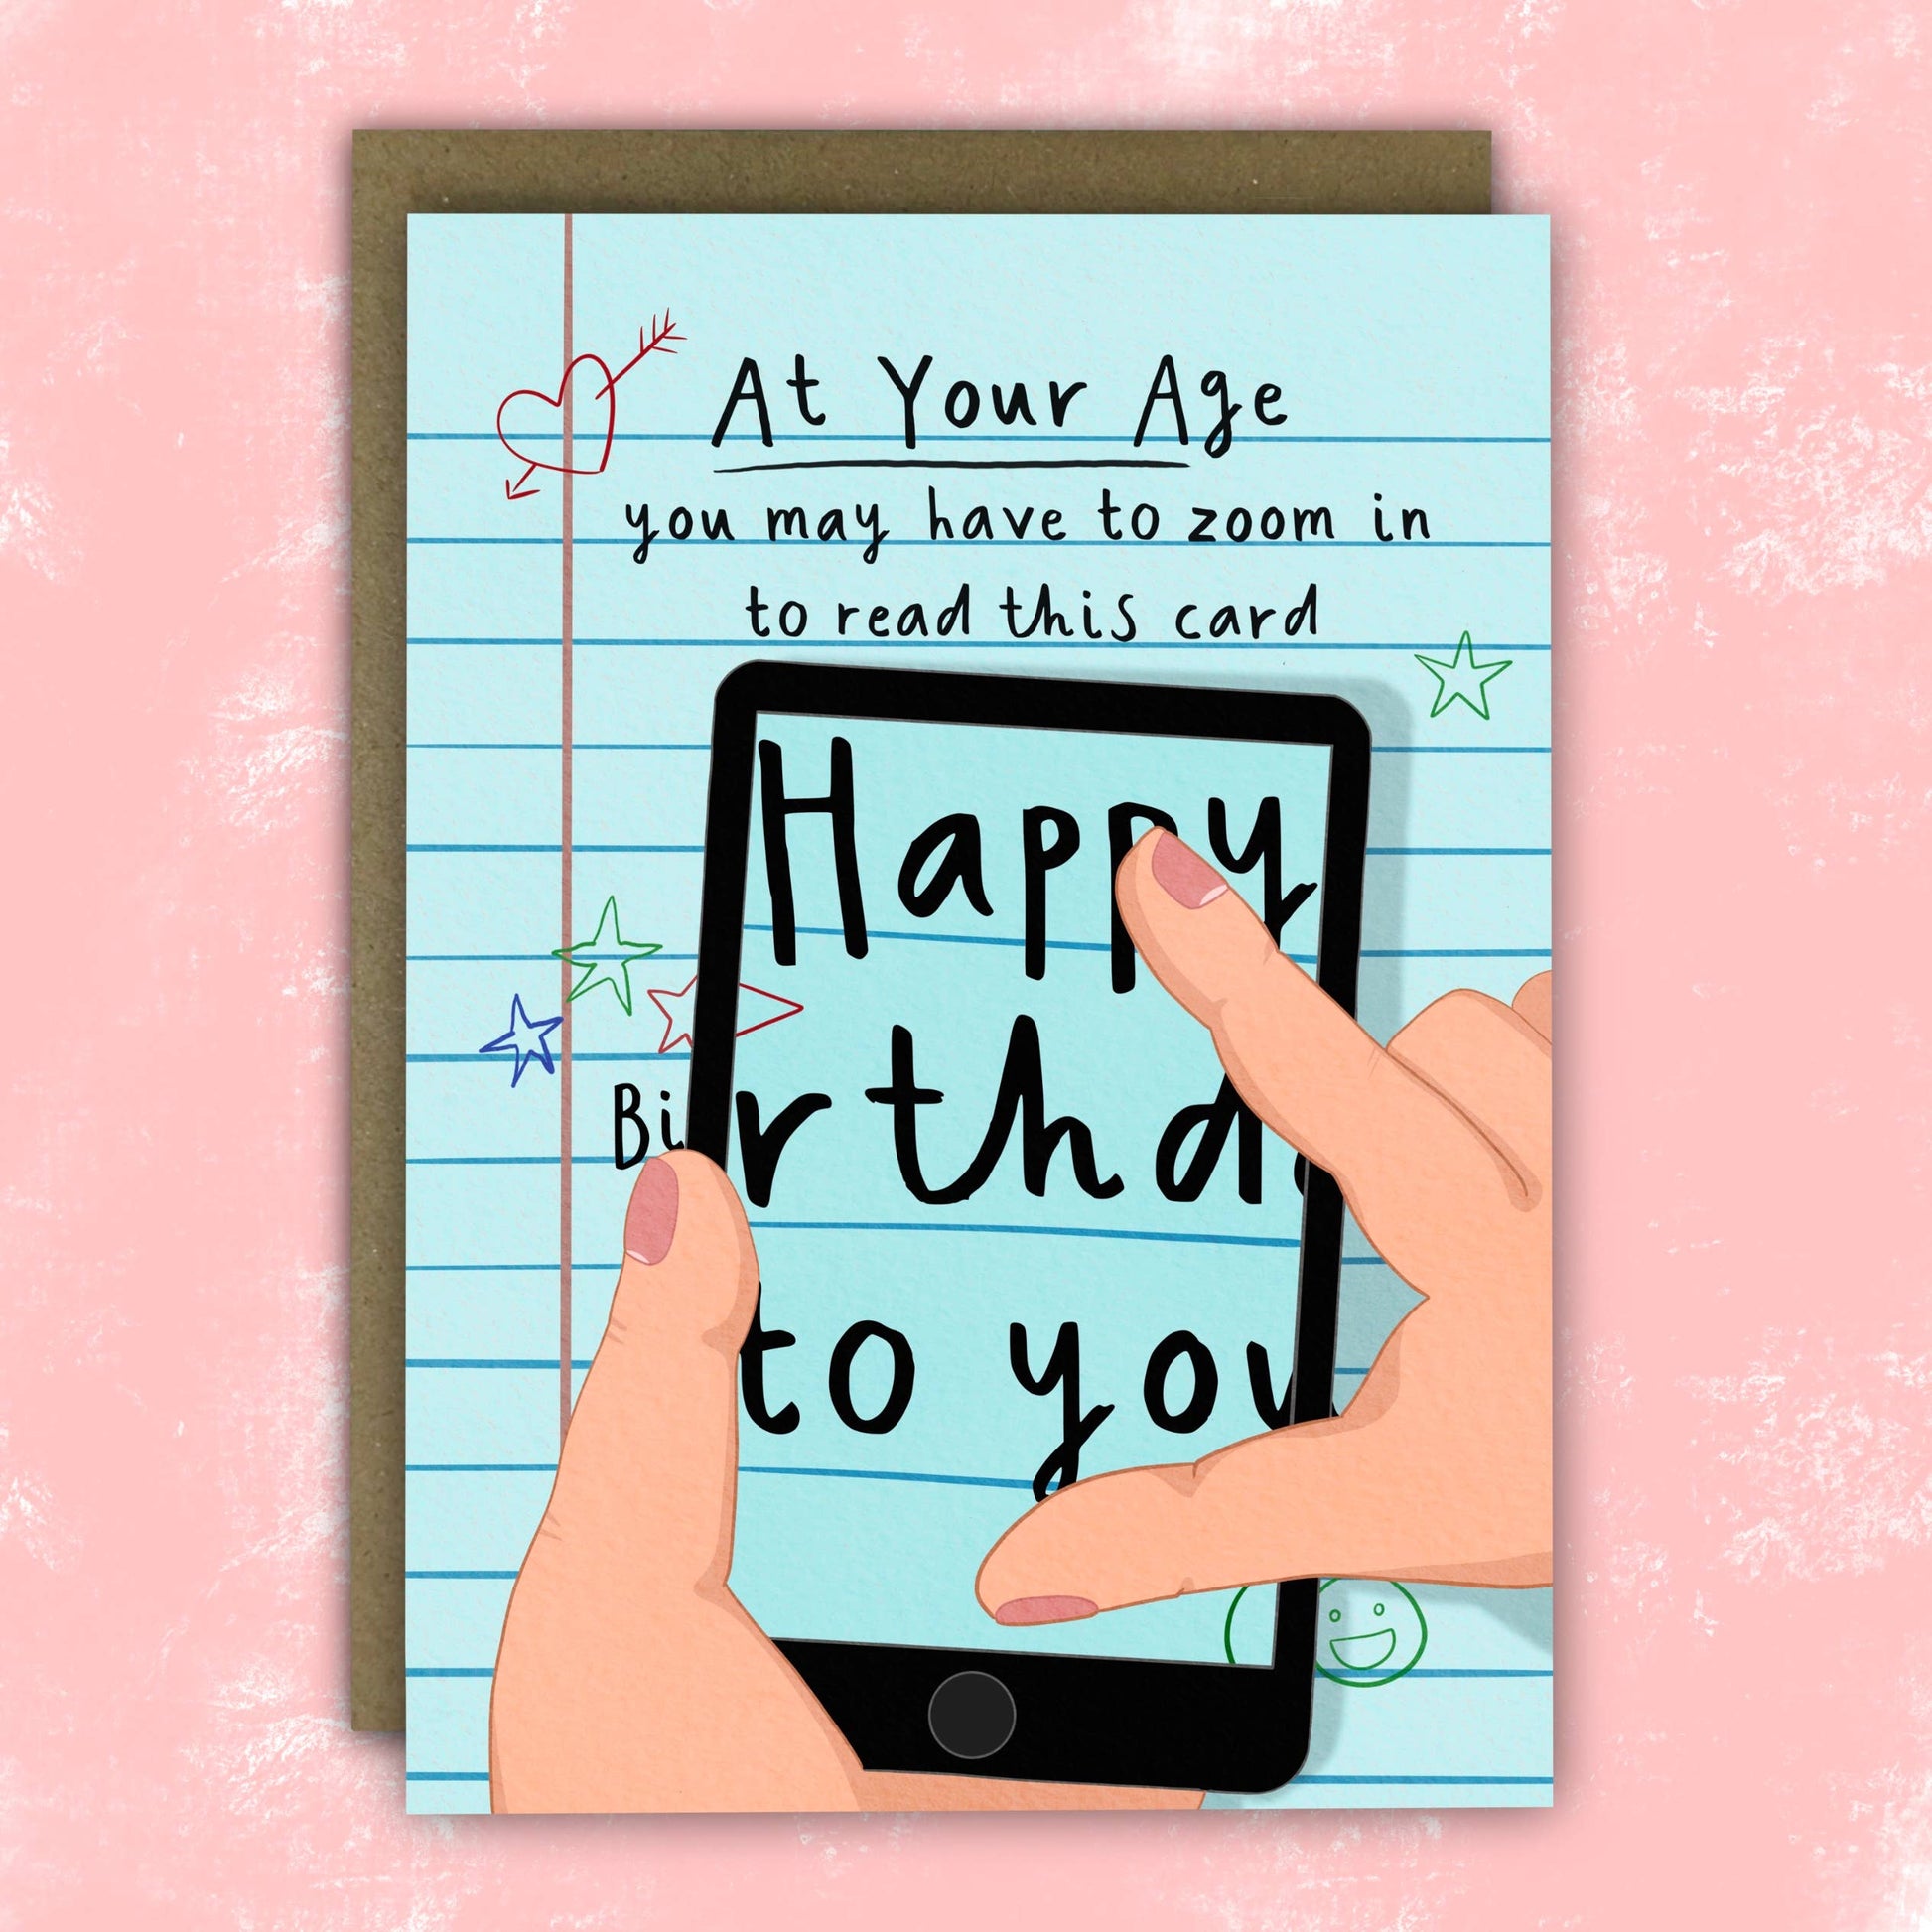 At Your Age
you may have to zoom in
to read this card
Happy
Birthda
to you